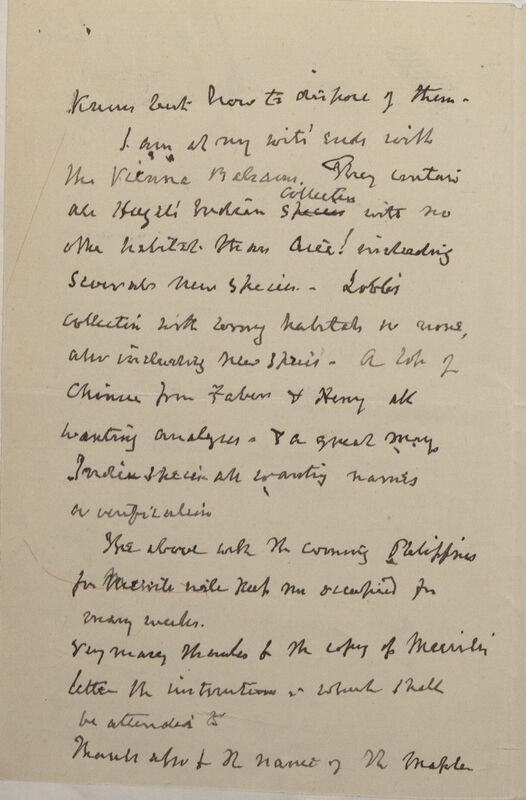 Known but how to dispose of them.
I am at my wits' ends with
the Vienna Balsams. They contain
all Hugel's Indian Species Collection with no
other habitat than Asia! including
several new species. - Lobb's
collection with wrong habitats or none,
also including new species. A lot of
Chinese from Faber & Henry all
wanting analyses - & a great many
Indian species all wanting names
or verification
The above with the coming Philippines
for will keep me occupied for
many weeks.
Very many thanks for the copy of Merrill's
letter the instructions in which shall
be attended to
Thanks also for the name of the